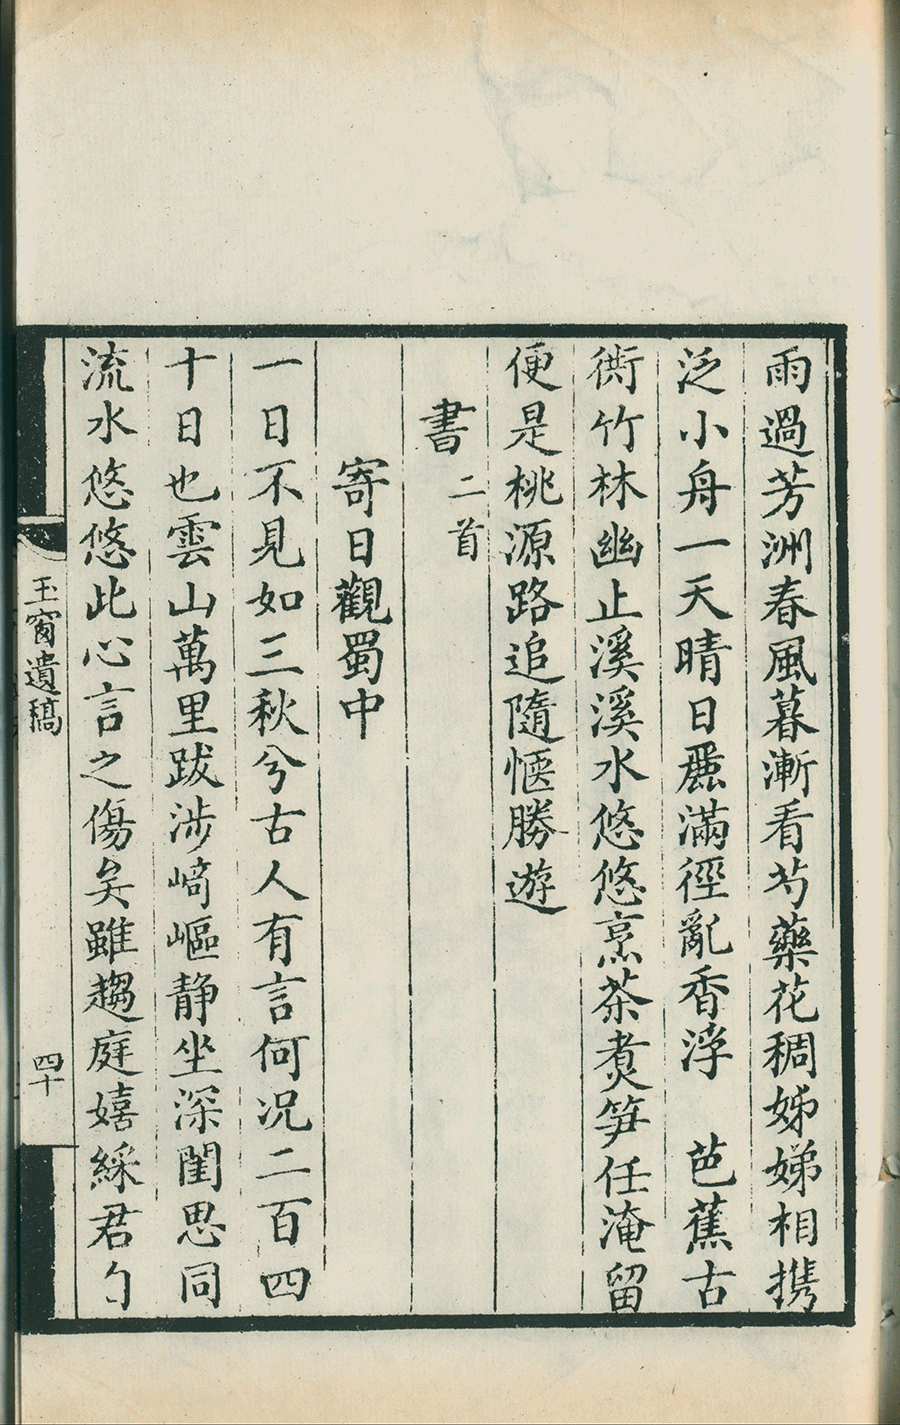 雨過芳洲春風暮漸看芍藥花稠姊娣相携
泛小舟一天晴日麗滿徑亂香浮　芭蕉古
衖竹林幽止溪溪水悠悠烹茶煑笋任淹留
便是桃源路追隨愜勝遊
書二首
寄日觀蜀中
一日不見如三秋兮古人有言何况二百四
十日也雲山萬里跋涉﨑嶇静坐深閨思同
流水悠悠此心言之傷矣雖趨庭嬉綵君勺
玉窗遺稿
四十